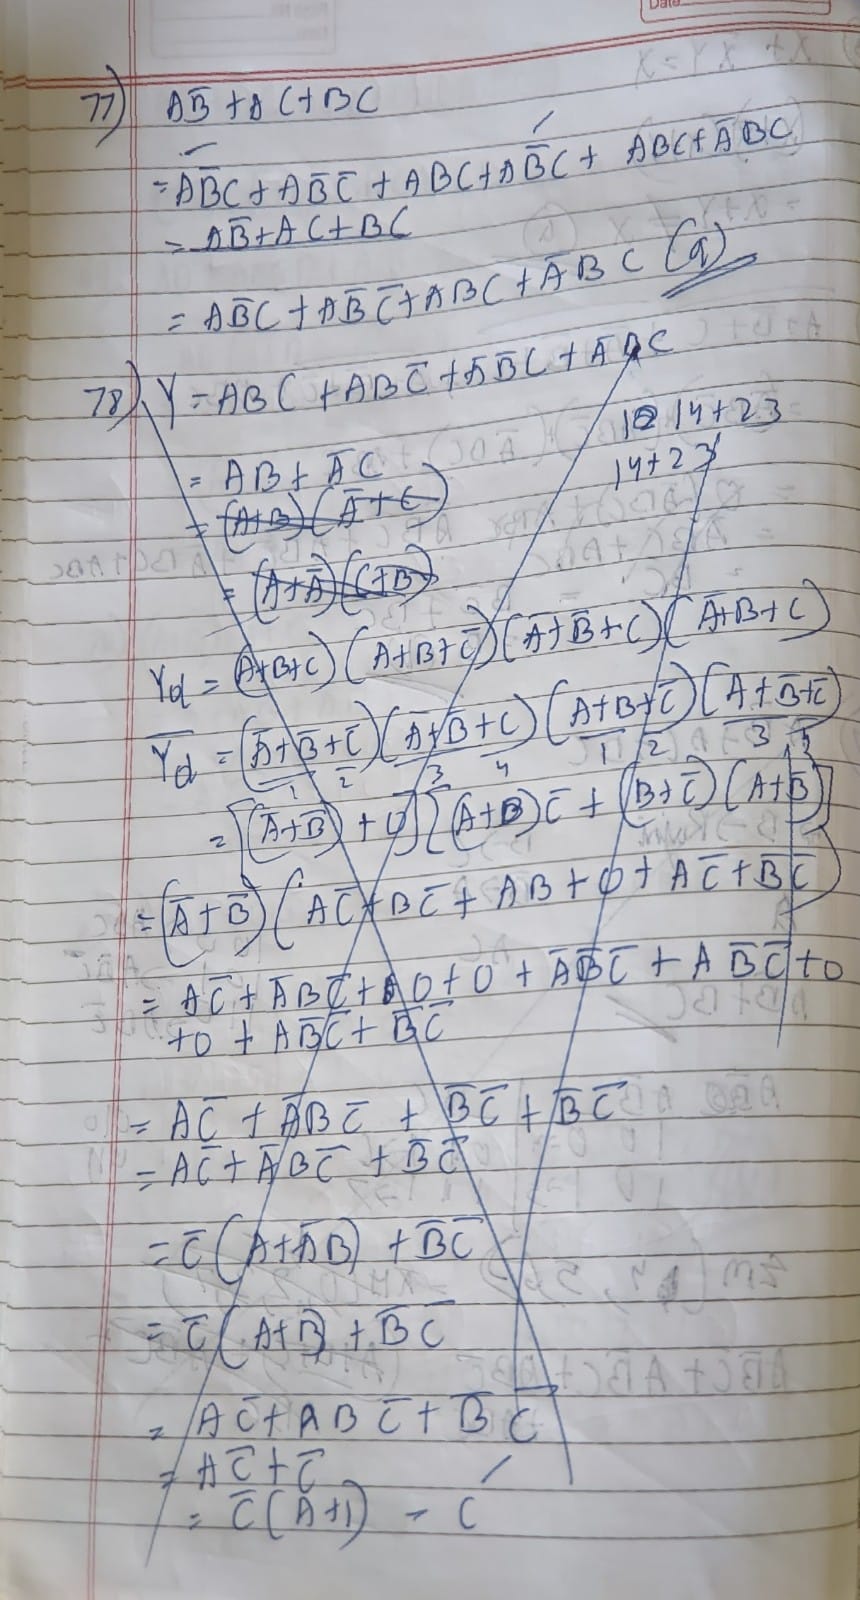 Date
77) AB̅ + AC + BC
= AB̅C + AB̅C̅ + ABC + AB̅C + ABC + A̅BC
= AB̅ + AC + BC
= AB̅C + AB̅C̅ + ABC + A̅BC (a)
78) Y = ABC + ABC̅ + A̅B̅C + A̅BC
= AB + A̅C
14+23
14+23
= (A+B)(A̅+C)
= (A+A̅)(C+B)
Yd = (A+B+C)(A+B+C̅)(A̅+B̅+C)(A̅+B+C)
Y̅d̅ = (A̅+B̅+C̅)(A̅+B̅+C)(A+B+C̅)(A+B̅+C̅)
1 2 3 4 1 2 3 4
= [(A̅+B̅)+0][(A+B)C̅ + (B+C̅)(A+B̅)]
= (A̅+B̅)(AC̅+BC̅+AB+0+AC̅+B̅C̅)
= AC̅ + A̅BC̅ + 0 + 0 + A̅B̅C̅ + AB̅C̅ + 0
+0 + AB̅C̅ + B̅C̅
= AC̅ + A̅BC̅ + B̅C̅ + B̅C̅
= AC̅ + A̅BC̅ + B̅C̅
= C̅(A+A̅B) + B̅C̅
= C̅(A+B) + B̅C̅
= AC̅ + ABC̅ + B̅C̅
= AC̅ + C̅
= C̅(A+1) - C̅